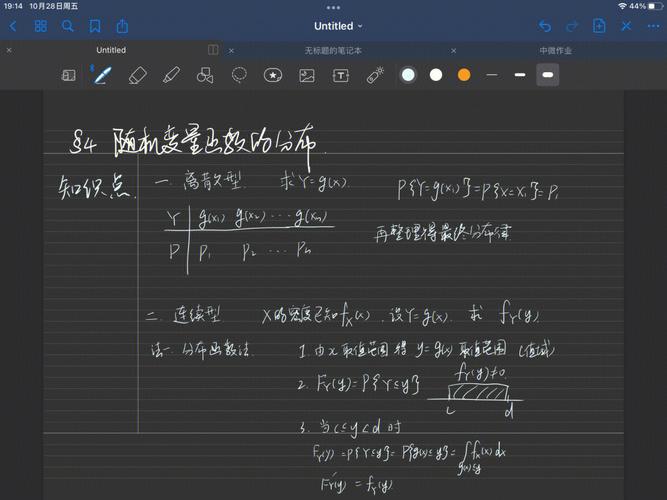 19:14 10月28日周五
44%
Untitled
Untitled
无标题的笔记本
中微作业
§4 随机变量函数的分布.
知识点.
一. 离散型. 求Y=g(x).
P{Y=g(x₁)}=P{X=x₁}=P₁
Y g(x₁) g(x₂) ··· g(xn)
P P₁ P₂ ··· Pn
再整理得最终分布律
二. 连续型 X的密度已知fX(x). 设Y=g(x). 求 fY(y).
法一. 分布函数法. 1. 由x取值范围得 y=g(x) 取值范围 (值域)
2. FY(y)=P{Y≤y}
fY(y)≠0.
c d
3. 当c≤y<d时
FY(y)=P{Y≤y}=P{g(x)≤y}=∫g(x)≤y fX(x)dx
F'Y(y)=fY(y)